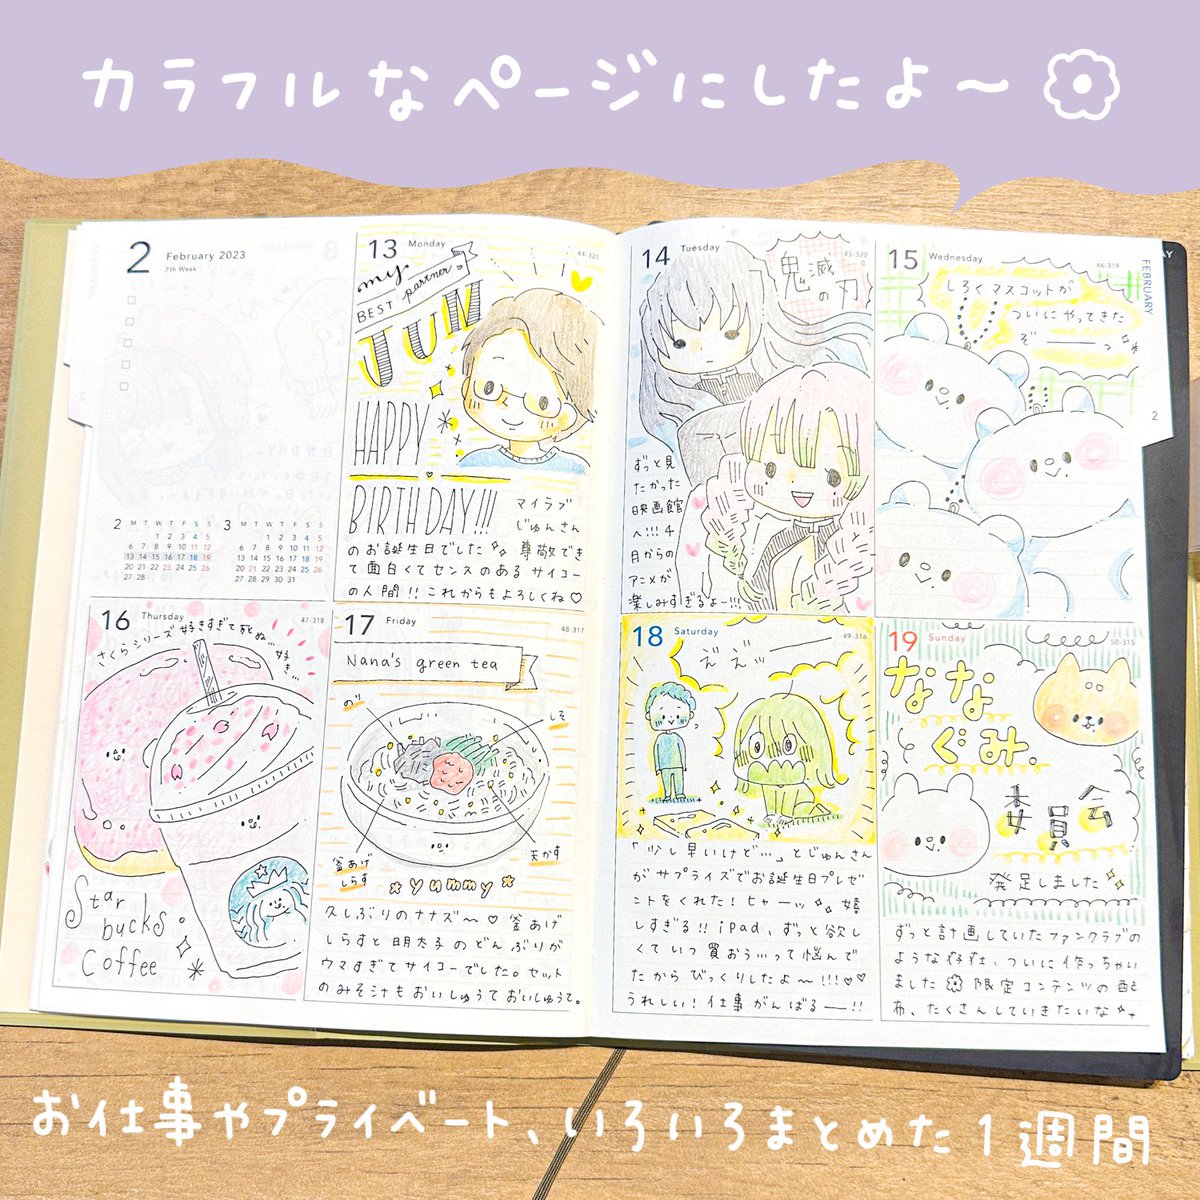 カラフルなページにしたよ〜
2 February 2023
7th Week
2 M T W T F S S
1 2 3 4 5
6 7 8 9 10 11 12
13 14 15 16 17 18 19
20 21 22 23 24 25 26
27 28
3 M T W T F S S
1 2 3 4 5
6 7 8 9 10 11 12
13 14 15 16 17 18 19
20 21 22 23 24 25 26
27 28 29 30 31
13 Monday
44-321
my
BEST partner
JUN
HAPPY
BIRTHDAY!!!
マイラブ
じゅんさん
のお誕生日でした 尊敬でき
て面白くてセンスのあるサイコー
の人間!!これからもよろしくね♡
14 Tuesday
45-320
鬼滅
の刃
ずっと見
たかった
映画館
へ!!! 4
月からの
アニメが
楽しみすぎるよー!!!
15 Wednesday
46-319
しろくマスコットが
ついにやってきた
ぞーっ
FEBRUARY
2
16 Thursday
47-318
さくらシリーズ好きすぎて死ぬ
好き
Star
bucks
Coffee
17 Friday
48-317
Nana's green tea
のり
しそ
釜あげ
しらす
天かす
*yummy*
久しぶりのナナズ〜♡ 釜あげ
しらすと明太子のどんぶりが
ウマすぎてサイコーでした。セット
のみそ汁もおいしゅうておいしゅうて。
18 Saturday
49-316
ええッー
「少し早いけど…」とじゅんさん
がサプライズでお誕生日プレゼ
ントをくれた!ヒャーッ 嬉
しすぎる!! iPad、ずっと欲し
くていつ買おう…って悩んで
たからびっくりしたよ〜!!!♡♡
うれしい!仕事がんばるー!!
19 Sunday
50-315
なな
ぐみ.
委員会
発足しました
ずっと計画していたファンクラブの
ような存在、ついに作っちゃい
ました 限定コンテンツの配
布、たくさんしていきたいな
お仕事やプライベート、いろいろまとめた1週間